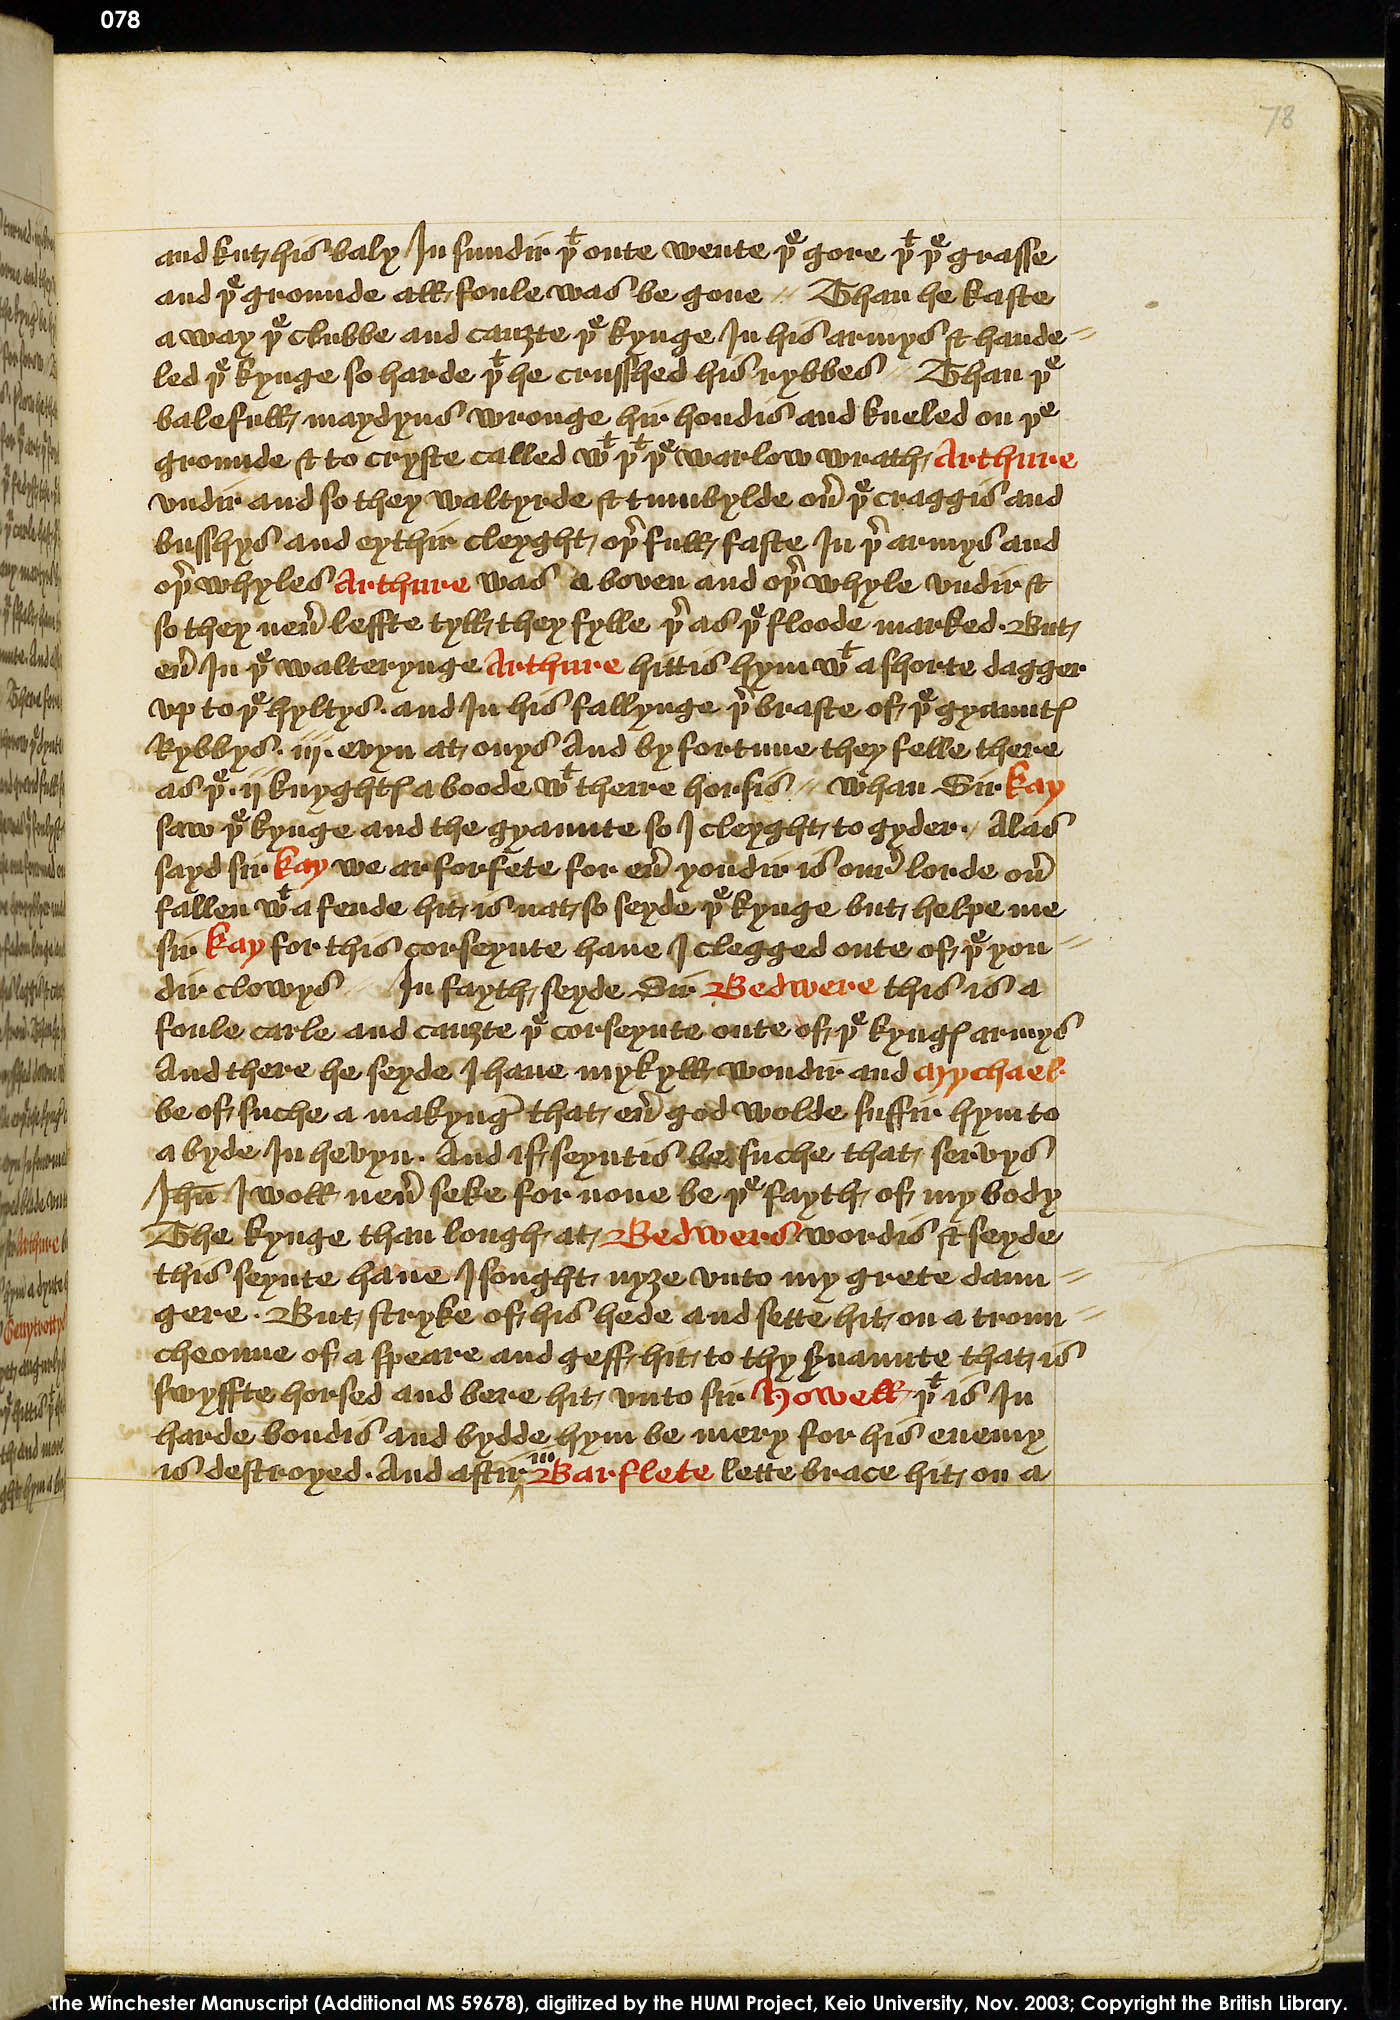 078
78
and kut his baly In sundir þᵗ oute wente þᵉ gore þᵗ þᵉ grasse
and þᵉ grounde all foule was be gone // Than he kaste
a way þᵉ clubbe and cauȝte þᵉ kynge In his armys & hande〃
led þᵉ kynge so harde þᵗ he crusshed his rybbes // Than þᵉ
balefull maydyns wronge hir hondis and kneled on þᵉ
grounde & to cryste called wᵗ þᵗ þᵉ warlow wrath Arthure
vndir and so they waltyrde & tumbylde oũ þᵉ craggis and
busshys and eythir cleyght oþ̃ full faste In þ̃ armys and
oþ̃ whyles Arthure was a boven and oþ̃ whyle vndir &
so they neũ leffte tyll they fylle þ̃ as þᵉ floode marked. But
eũ In þᵉ walterynge Arthure hittis hym wᵗ a shorte dagger
vp to þᵉ hyltys. and In his fallynge þ̃ braste of þᵉ gyauntꝭ
Rybbys. iij. evyn at onys And by fortune they felle there
as þᵉ. ij knyghtꝭ a boode wᵗ theire horsis // whan Sir kay
saw þᵉ kynge and the gyaunte so I cleyght to gyder. // Alas
sayd sir kay we ar forfete for eũ yondir is our̃ lorde oũ
fallen wᵗ a fende hit is nat so seyde þᵉ kynge but helpe me
sir kay for this corseynte haue I clegged oute of þᵉ yon〃
dir clowys // In fayth seyde Sir Bedwere this is a
foule carle and cauȝte þᵉ corseynte oute of þᵉ kyngꝭ armys
And there he seyde I haue mykyll wondir and Mychael
be of suche a makyng̃ that eũ god wolde suffir hym to
a byde In hevyn. And if seyntis be suche that servys
Ihū I woll neũ seke for none be þᵉ fayth of my body
The kynge than lough at Bedwers wordis & seyde
this seynte haue I sought nyȝe vnto my grete daun〃
gere. But stryke of his hede and sette hit on a troun〃
cheoune of a speare and geff hit to thy s̃uaunte that is
swyffte horsed and bere hit vnto sir Howell þᵗ is In
harde bondis and bydde hym be mery for his enemy
is destroyed. And aftir in Barflete lette brace hit on a
The Winchester Manuscript (Additional MS 59678), digitized by the HUMI Project, Keio University, Nov. 2003; Copyright the British Library.